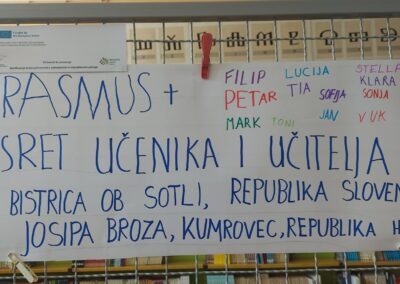 RASMUS +
FILIP LUCIJA STELLA
KLARA
PETAR TIA SOFIJA SONJA
MARK TONI JAN VUK
SRET UČENIKA I UČITELJA
BISTRICA OB SOTLI, REPUBLIKA SLOVEN
JOSIPA BROZA, KUMROVEC, REPUBLIKA H